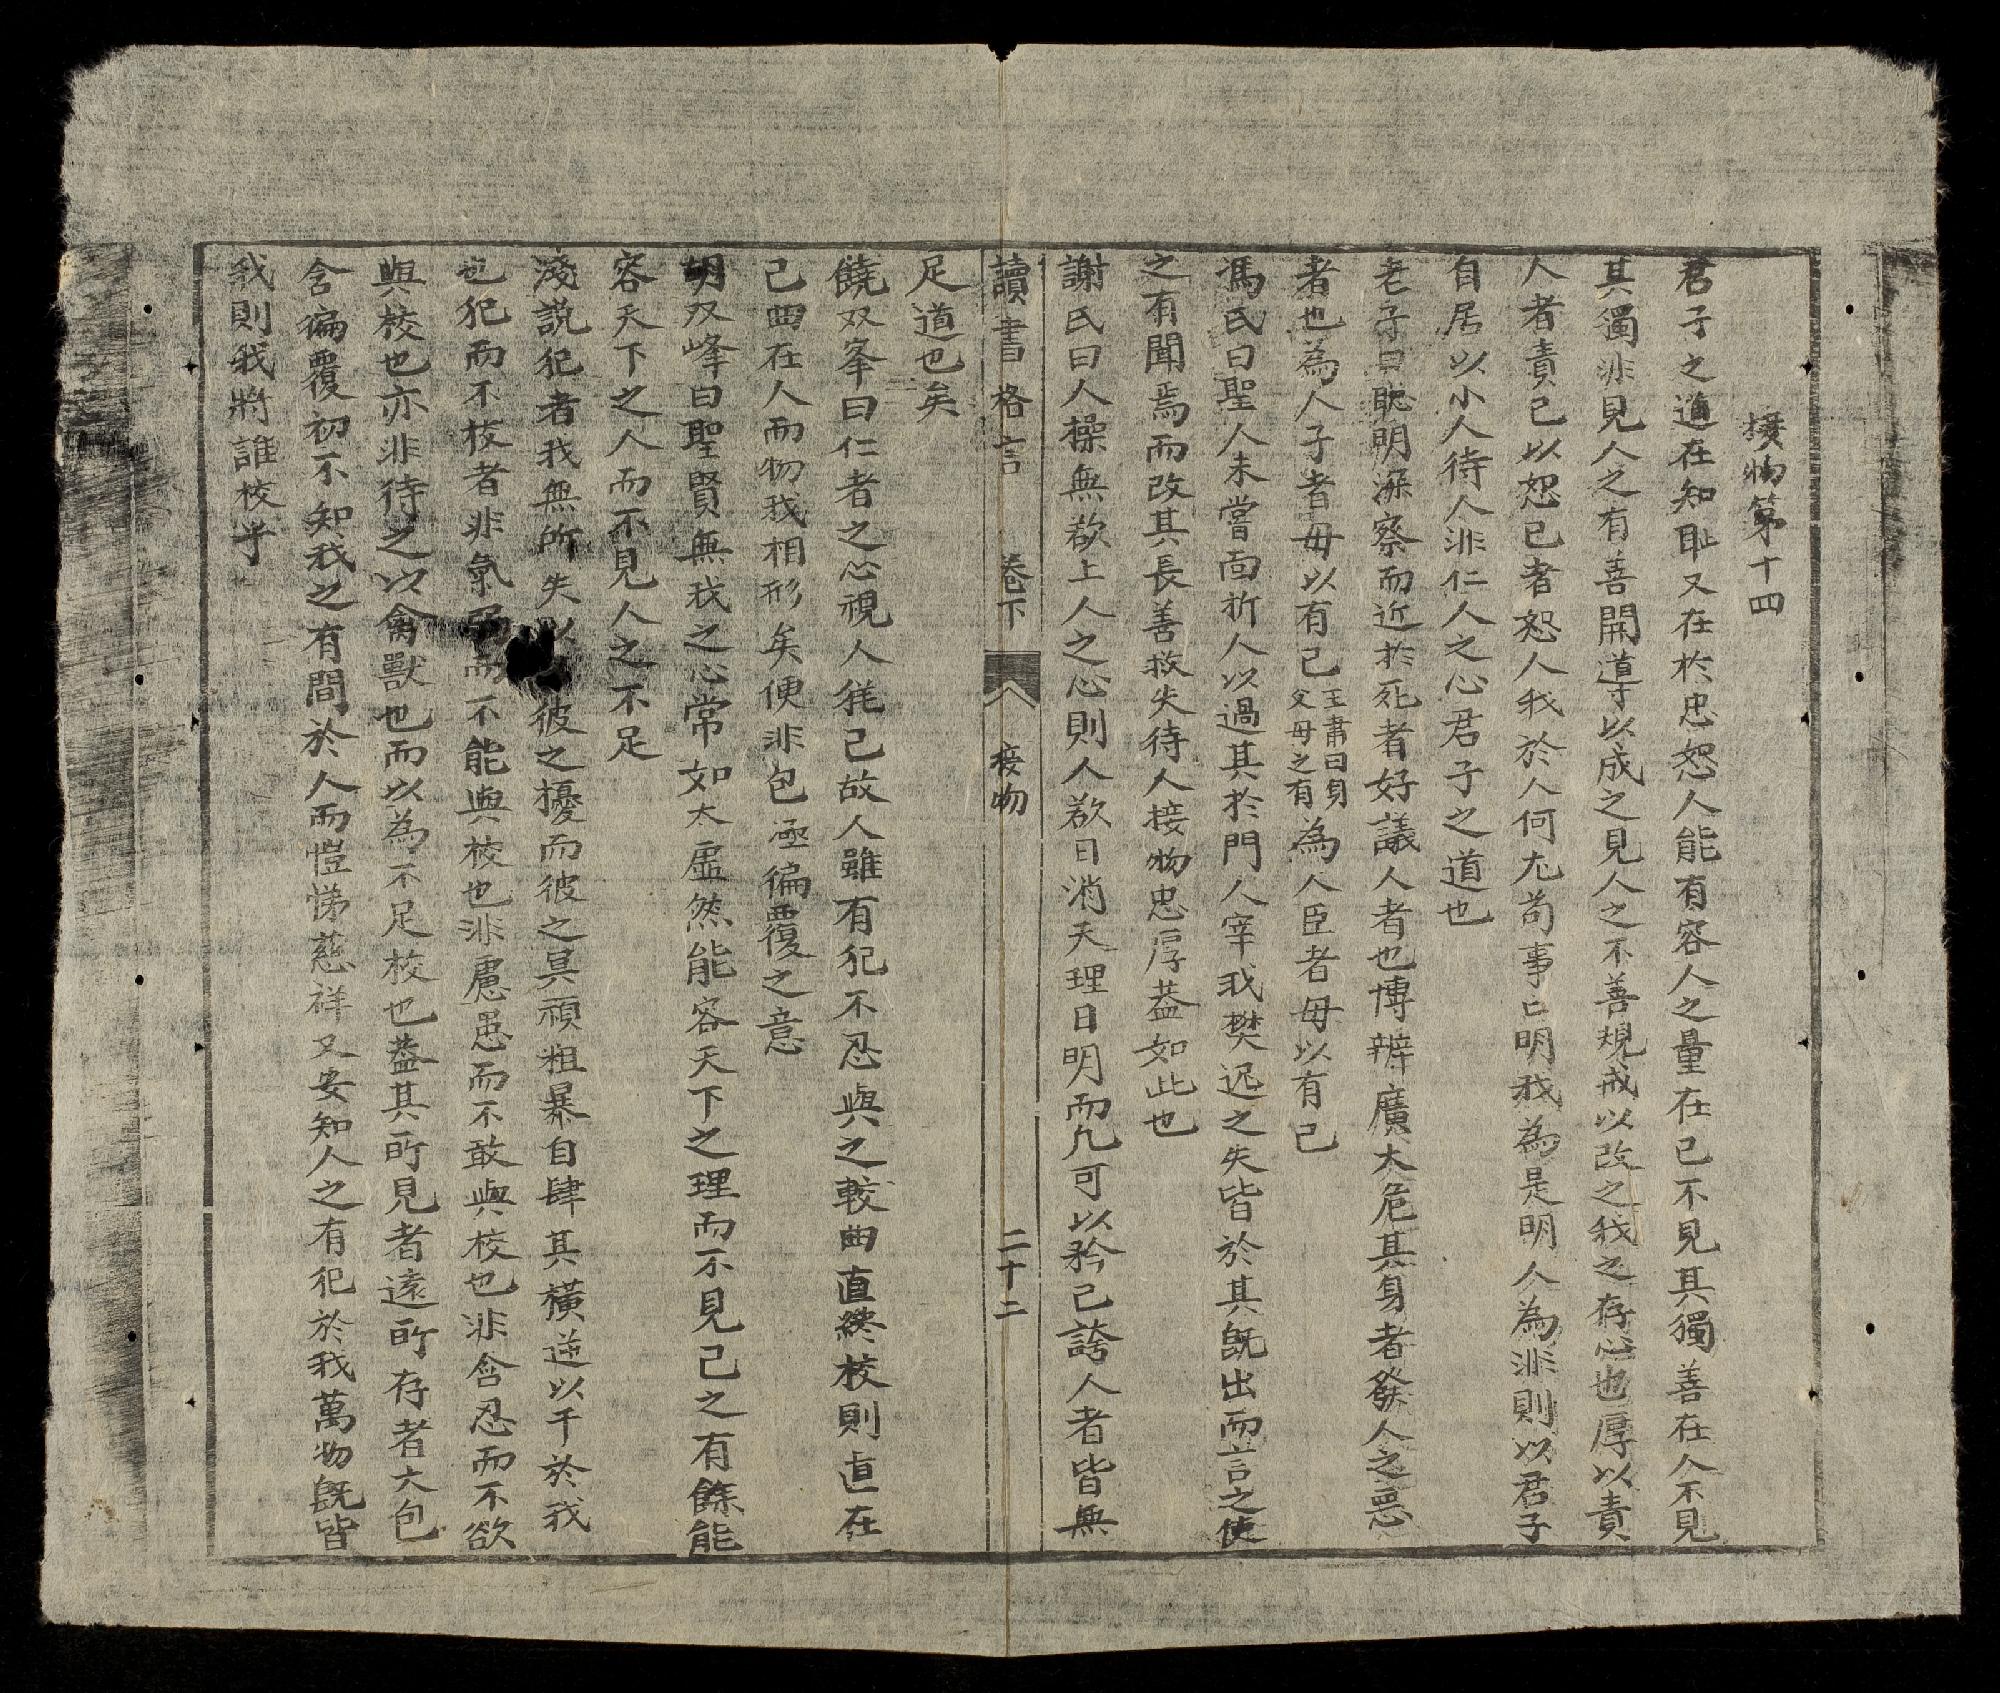 接物第十四
君子之道在知耻又在於忠恕人能有容人之量在己不見其獨善在人不見
其獨非見人之有善開導以成之見人之不善規戒以改之我之存心也厚以責
人者責己以恕己者恕人我於人何尤苟事已明我為是明人為非則以君子
自居以小人待人非仁人之心君子之道也
老子曰聡明深察而近於死者好議人者也博辨廣大危其身者發人之惡
者也為人子者毋以有己王肅曰身父母之有為人臣者毋以有己
馮氏曰聖人未嘗面折人以過其於門人宰我樊迟之失皆於其既出而言之使
之有聞焉而改其長善救失待人接物忠厚盖如此也
謝氏曰人操無欲上人之心則人欲日消天理日明而凡可以矜己誇人者皆無
讀書格言 卷下 接物 二十二
足道也矣
饒双峯曰仁者之心視人猶己故人雖有犯不忍與之較曲直終校則直在
己曲在人而物我相形矣便非包極徧覆之意
胡双峰曰聖賢無我之心常如太虚然能容天下之理而不見己之有餘能
容天下之人而不見人之不足
淺説犯者我無所失以彼之擾而彼之冥頑粗暴自肆其橫逆以干於我
也犯而不校者非氣弱而不能與校也非慮患而不敢與校也非含忍而不欲
與校也亦非待之以禽獸也而以為不足校也盖其所見者遠所存者大包
含徧覆初不知我之有間於人而愷悌慈祥又安知人之有犯於我萬物既皆
我則我將誰校乎